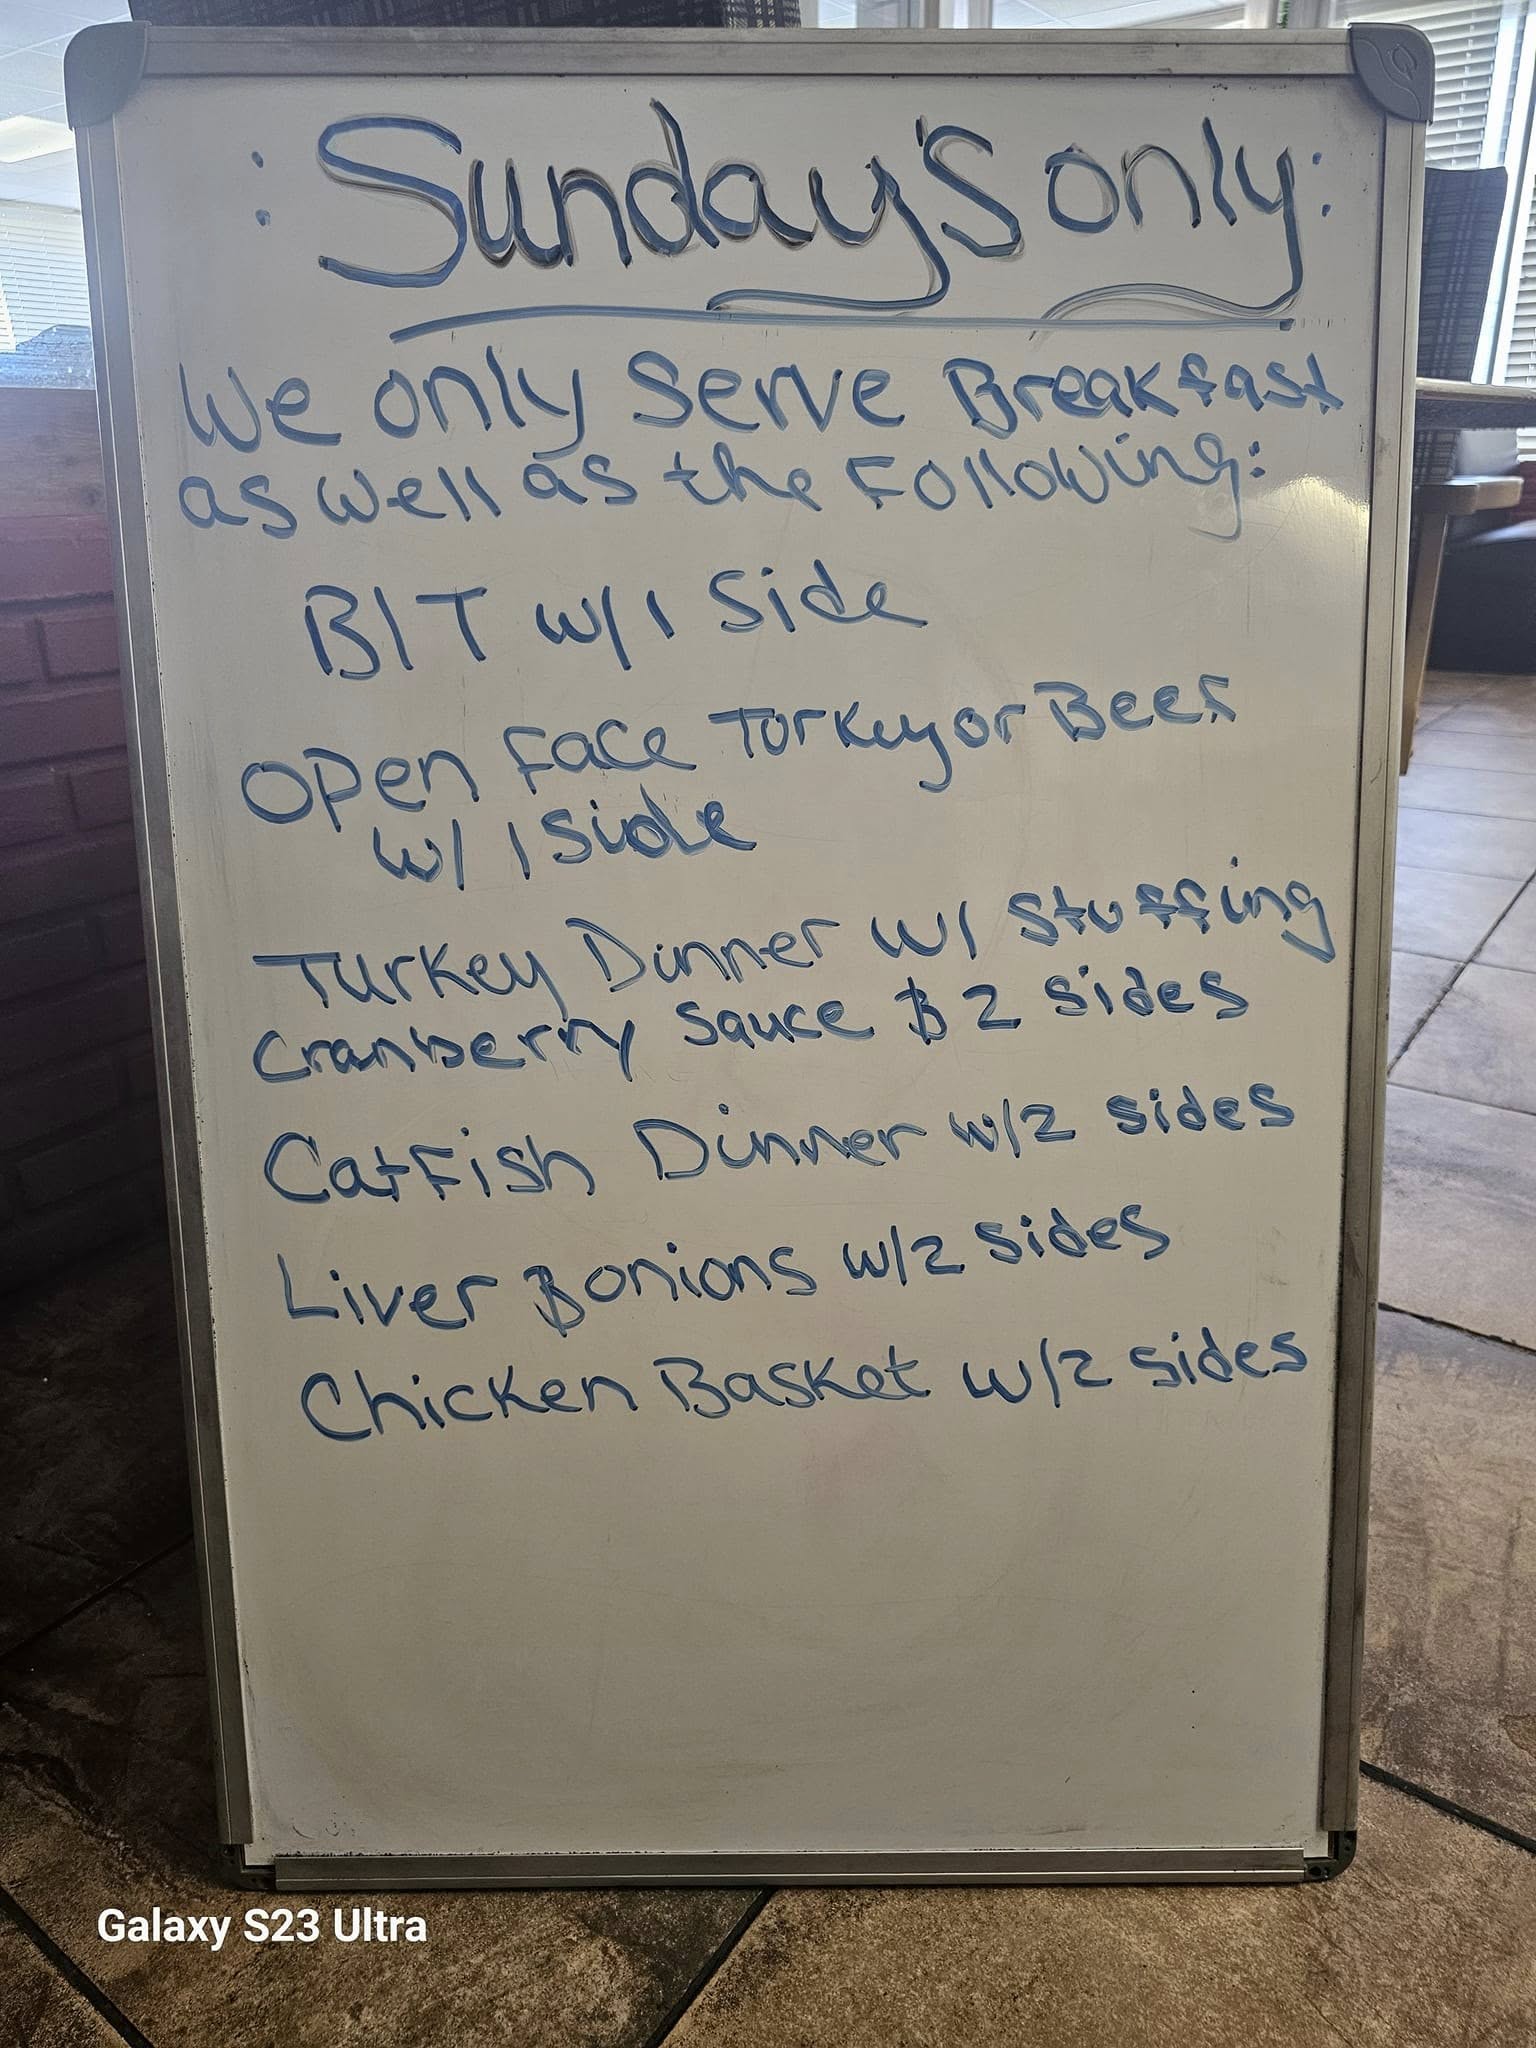 : Sunday's only :
We only Serve Breakfast
as well as the Following:
BlT w/1 Side
Open Face Turkey or Beef
w/ 1 side
Turkey Dinner w/ Stuffing
Cranberry Sauce & 2 sides
Catfish Dinner w/2 sides
Liver & onions w/2 sides
Chicken Basket w/2 sides
Galaxy S23 Ultra